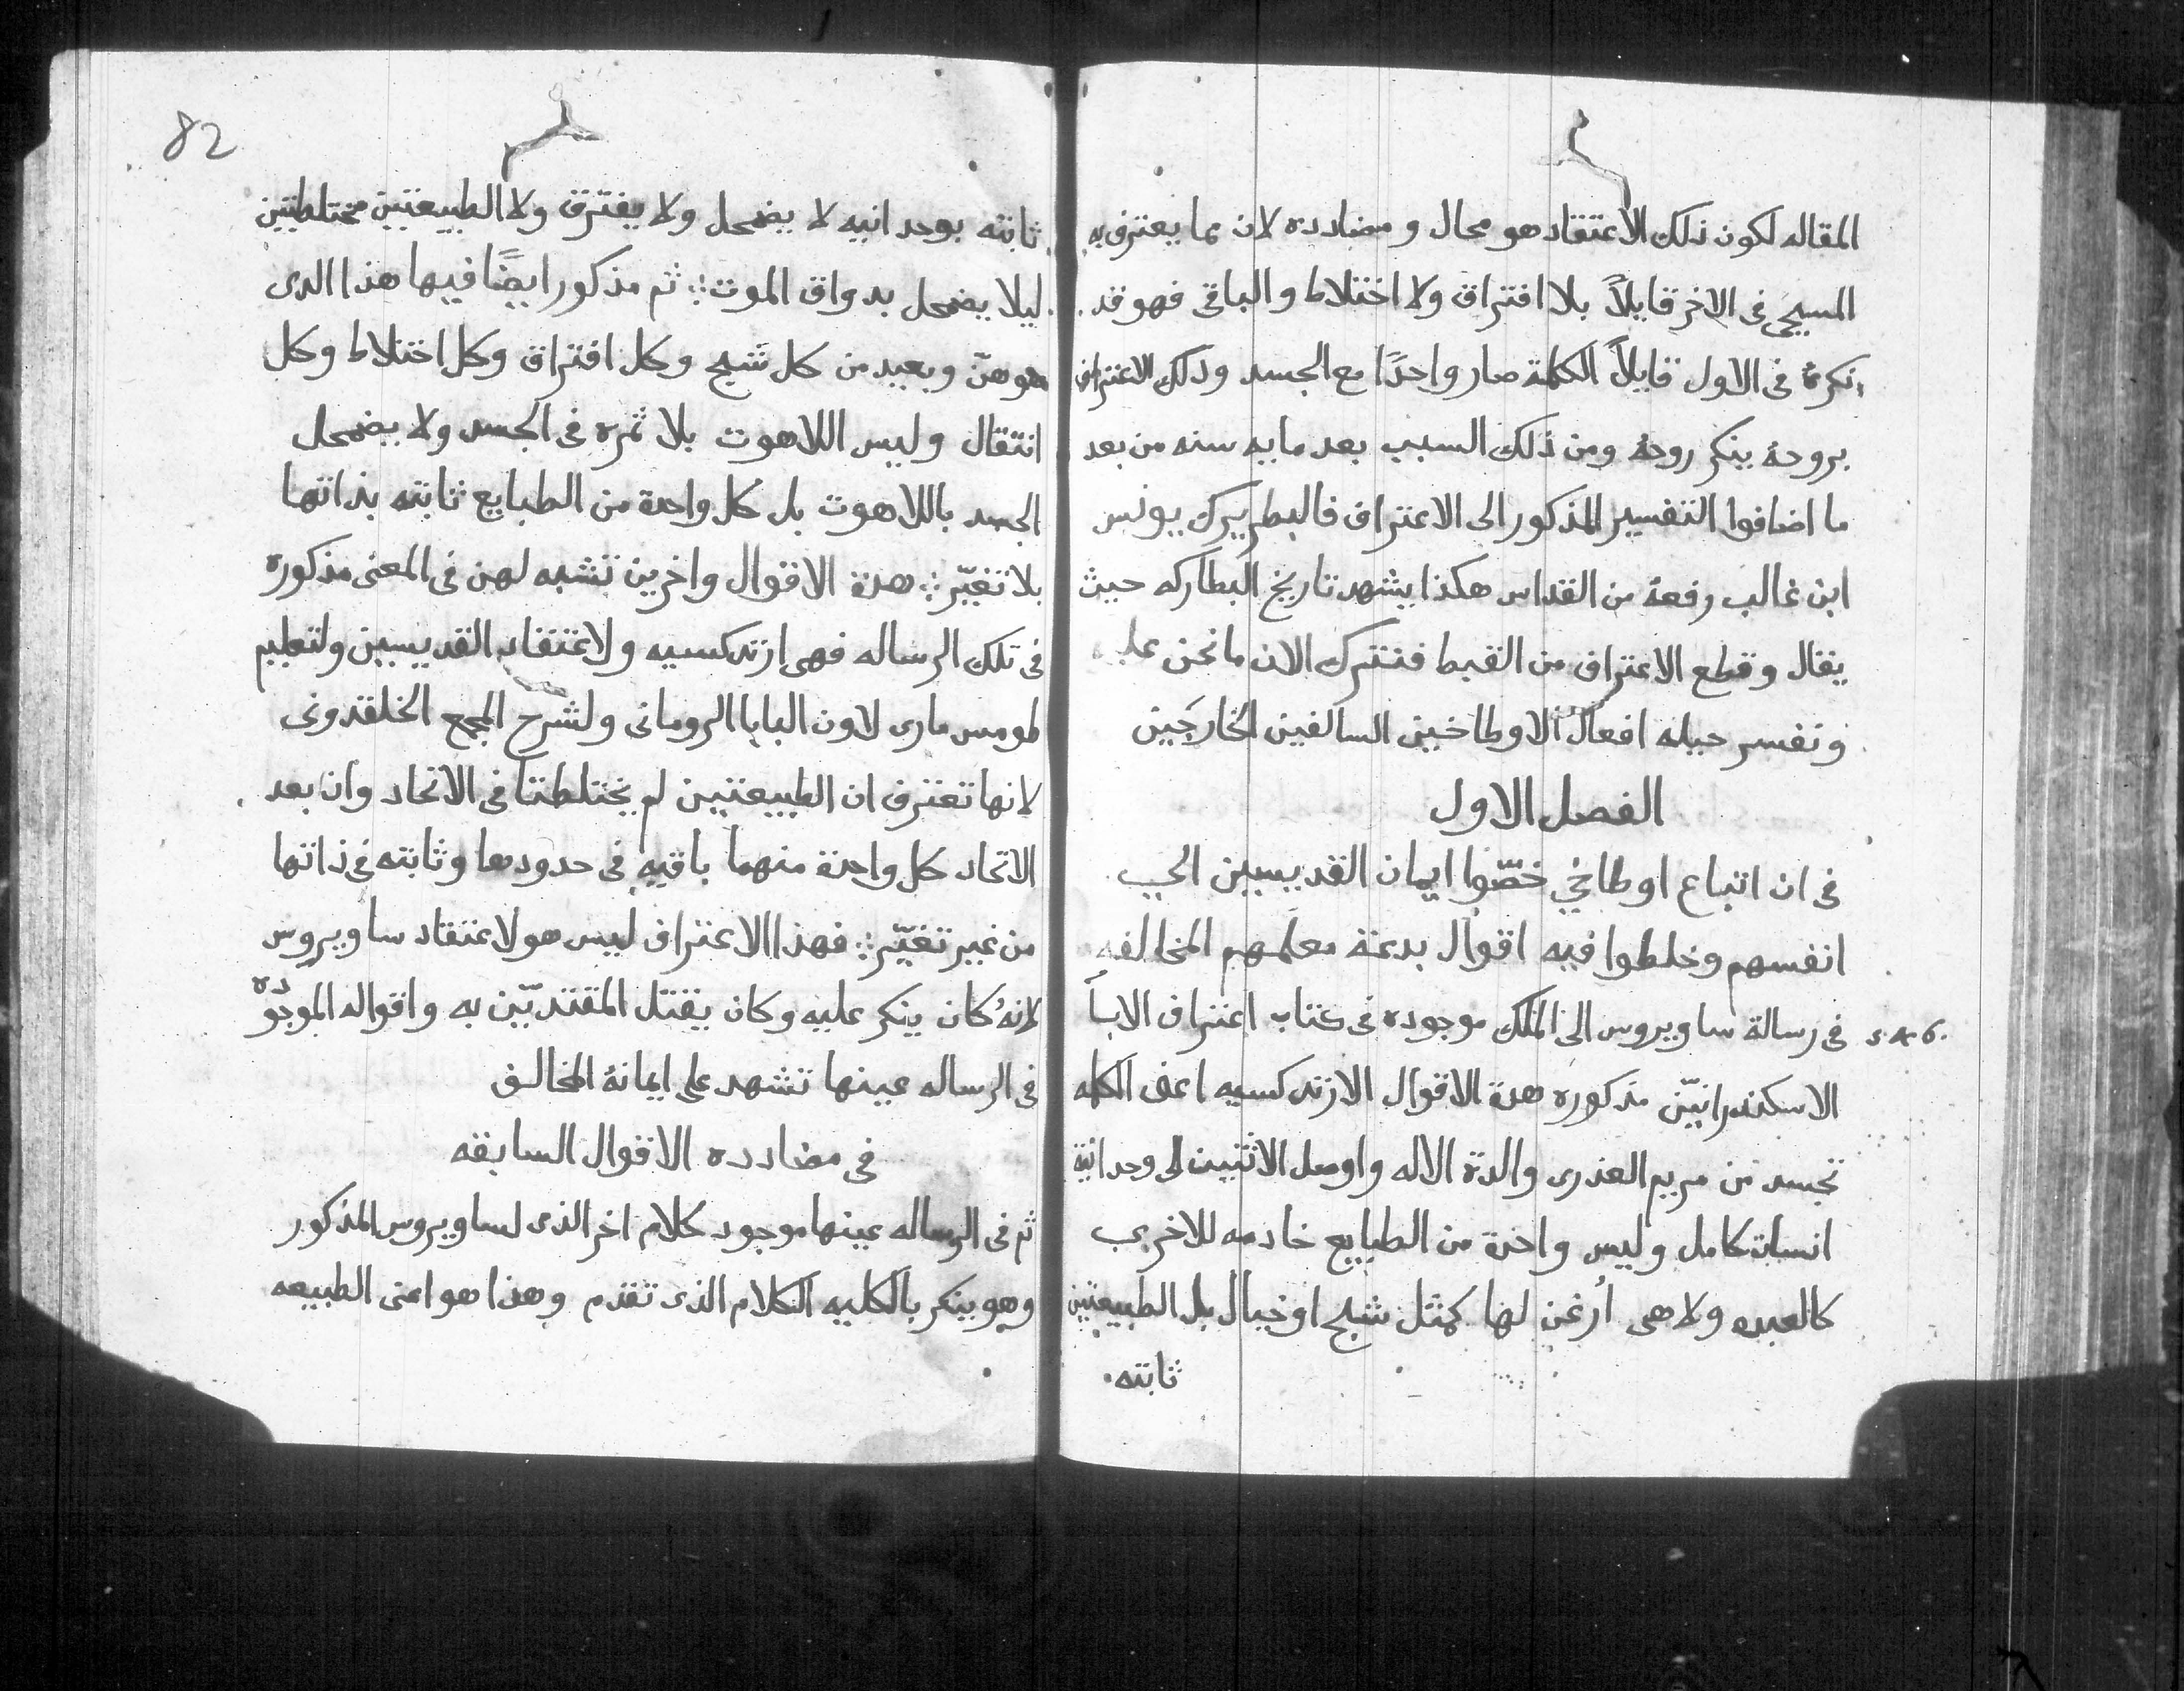 المقاله لكون ذلك الاعتقاد هو محال ومضادده لان بما يعترف به
المسيحى فى الاخر قايلاً بلا افتراق ولا اختلاط والباقى فهو قد
نكرهُ فى الاول قايلاً الكلمة صار واحدًا مع الجسد وذلك الاعتراف
بروحهُ ينكر روحهُ ومن ذلك السبب بعد مايه سنه من بعد
ما اضافوا التفسير المذكور الى الاعتراف فالبطريرك يونس
ابن غالب رفعهُ من القداس هكذا يشهد تاريخ البطاركه حيث
يقال وقطع الاعتراف من القبط فنترك الان ما نحن عليه
ونفسر حيله افعال الاوطاخيين السالفين الخارجين
الفصل الاول
فى ان اتباع اوطاخى خصّوا ايمان القديسين الى
انفسهم وخلطوا فيه اقوال بدعة معلمهم المخالفه
s. x 6.
فى رسالة ساويروس الى الملك موجوده فى كتاب اعتراف الابآ
الاسكندرانيّن مذكوره هذة الاقوال الارتدكسيه اعنى الكلمه
تجسد من مريم العذرى والدة الاله واوصل الاثنين الى وحدانية
انسان كامل وليس واحدة من الطبايع خادمه للاخرى
كالعبده ولا هى اُرغن لها كمثل شبح او خيال بل الطبيعتين
ثابته
82
ثابته بوحدانيه لا يضمحل ولا يفترق ولا الطبيعتيين مختلطتين
ليلا يضمحل بدواق الموت ثم مذكور ايضًا فيها هذا الدى
هو هنّ وبعيد من كل شبح وكل افتراق وكل اختلاط وكل
انتقال وليس اللاهوت بلا ثمره فى الجسد ولا يضمحل
الجسد باللاهوت بل كل واحدة من الطبايع ثابته بذاتها
بلا تغيّر هذة الاقوال واخرين تشبه لهن فى المعنى مذكوره
فى تلك الرساله فهى ارتدكسيه ولاعتقاد القديسين ولتعليم
طومس مارى لاون البابا الرومانى ولشرح المجمع الخلقدونى
لانها تعترف ان الطبيعتين لم يختلطتا فى الاتحاد وان بعد
الاتحاد كل واحدة منهما باقيه فى حدودها وثابته فى ذاتها
من غير تغيّر فهذا الاعتراف ليس هو لاعتقاد ساويروس
لانهُ كان ينكر عليه وكان يقتل المقتديّين به واقواله الموجوده
فى الرساله عينها تشهد على ايمانهُ المخالف
فى مضادده الاقوال السابقه
ثم فى الرساله عينها موجود كلام اخر الذى لساويروس المذكور
وهو ينكر بالكليه الكلام الذى تقدم وهذا هو اعنى الطبيعه